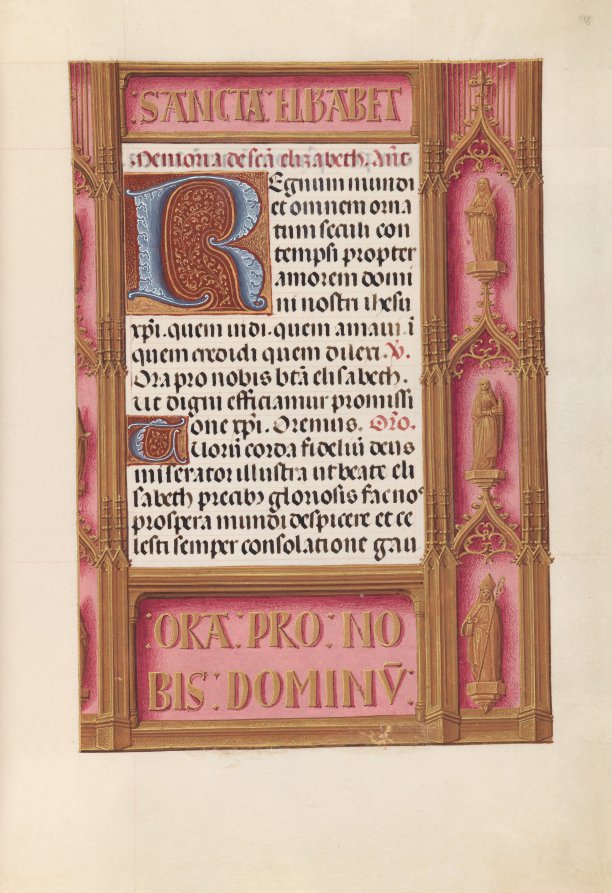 198
:SANCTA·ELISABET
Memoria de scā elizabeth. Ant̄
Regnum mundi
et omnem orna
tum seculi con
tempsi propter
amorem domi
ni nostri ihesu
xp̄i. quem uidi. quem amaui. ī
quem credidi quem dilexi. V̄.
Ora pro nobis bt̄a elisabeth.
Ut digni efficiamur promissi
one xp̄i. Oremus. Or̄o.
Tuorū corda fideliū deus
miserator illustra ut beate eli
sabeth precibꝫ gloriosis fac nos
prospera mundi despicere et ce
lesti semper consolatione gau
:ORA:PRO:NO
BIS:DOMINV̄: